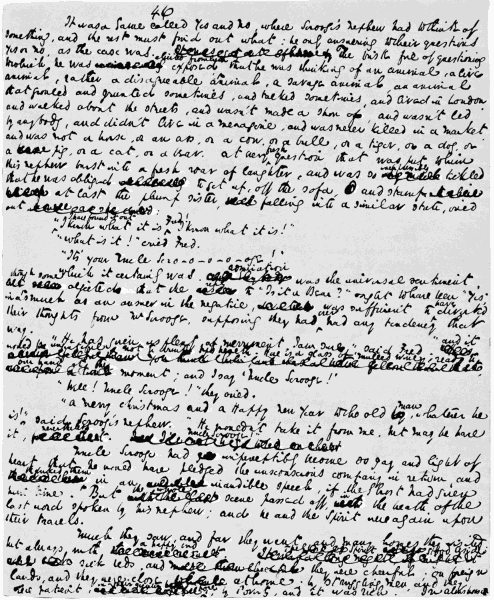 46
It was a Game called Yes and No, where Scrooge's nephew had to think of
something, and the rest must find out what; he only answering to their questions
yes or no, as the case was. The brisk fire of questioning
to which he was exposed, elicited from him that he was thinking of an animal, a live
animal, rather a disagreeable animal, a savage animal, an animal
that growled and grunted sometimes, and talked sometimes, and lived in London,
and walked about the streets, and wasn't made a show of, and wasn't led
by anybody, and didn't live in a menagerie, and was never killed in a market,
and was not a horse, or an ass, or a cow, or a bull, or a tiger, or a dog, or
a pig, or a cat, or a bear. At every fresh question that was put to him
this nephew burst into a fresh roar of laughter; and was so inexpressibly tickled
that he was obliged to get up off the sofa and stamp.
At last the plump sister, falling into a similar state, cried
out
"I have found it out!
I know what it is, Fred! I know what it is!"
"What is it!" cried Fred.
"It's your Uncle Scro-o-o-o-oge!"
Which it certainly was. Admiration was the universal sentiment,
though some objected that the reply to "Is it a Bear?" ought to have been "Yes;"
inasmuch as an answer in the negative was sufficient to have diverted
their thoughts from Mr Scrooge, supposing they had ever had any tendency that
way.
"He has given us plenty of merriment, I am sure," said Fred, "and it
would be ungrateful not to drink his health. Here is a glass of mulled wine ready to
our hand at the moment; and I say 'Uncle Scrooge!'"
"Well! Uncle Scrooge!" they cried.
"A merry Christmas and a Happy New Year to the old man, whatever he
is!" said Scrooge's nephew. "He wouldn't take it from me, but may he have
it, nevertheless. Uncle Scrooge!"
Uncle Scrooge had imperceptibly become so gay and light of
heart, that he would have pledged the unconscious company in return, and
thanked them in an inaudible speech, if the Ghost had given
him time. But the whole scene passed off in the breath of the
last word spoken by his nephew; and he and the Spirit were again upon
their travels.
Much they saw, and far they went, and many homes they visited,
but always with a happy end. The Spirit stood
beside sick beds, and they were cheerful; on foreign
lands, and they were close at home; by struggling men, and they
were patient; by poverty, and it was rich. In almshouse